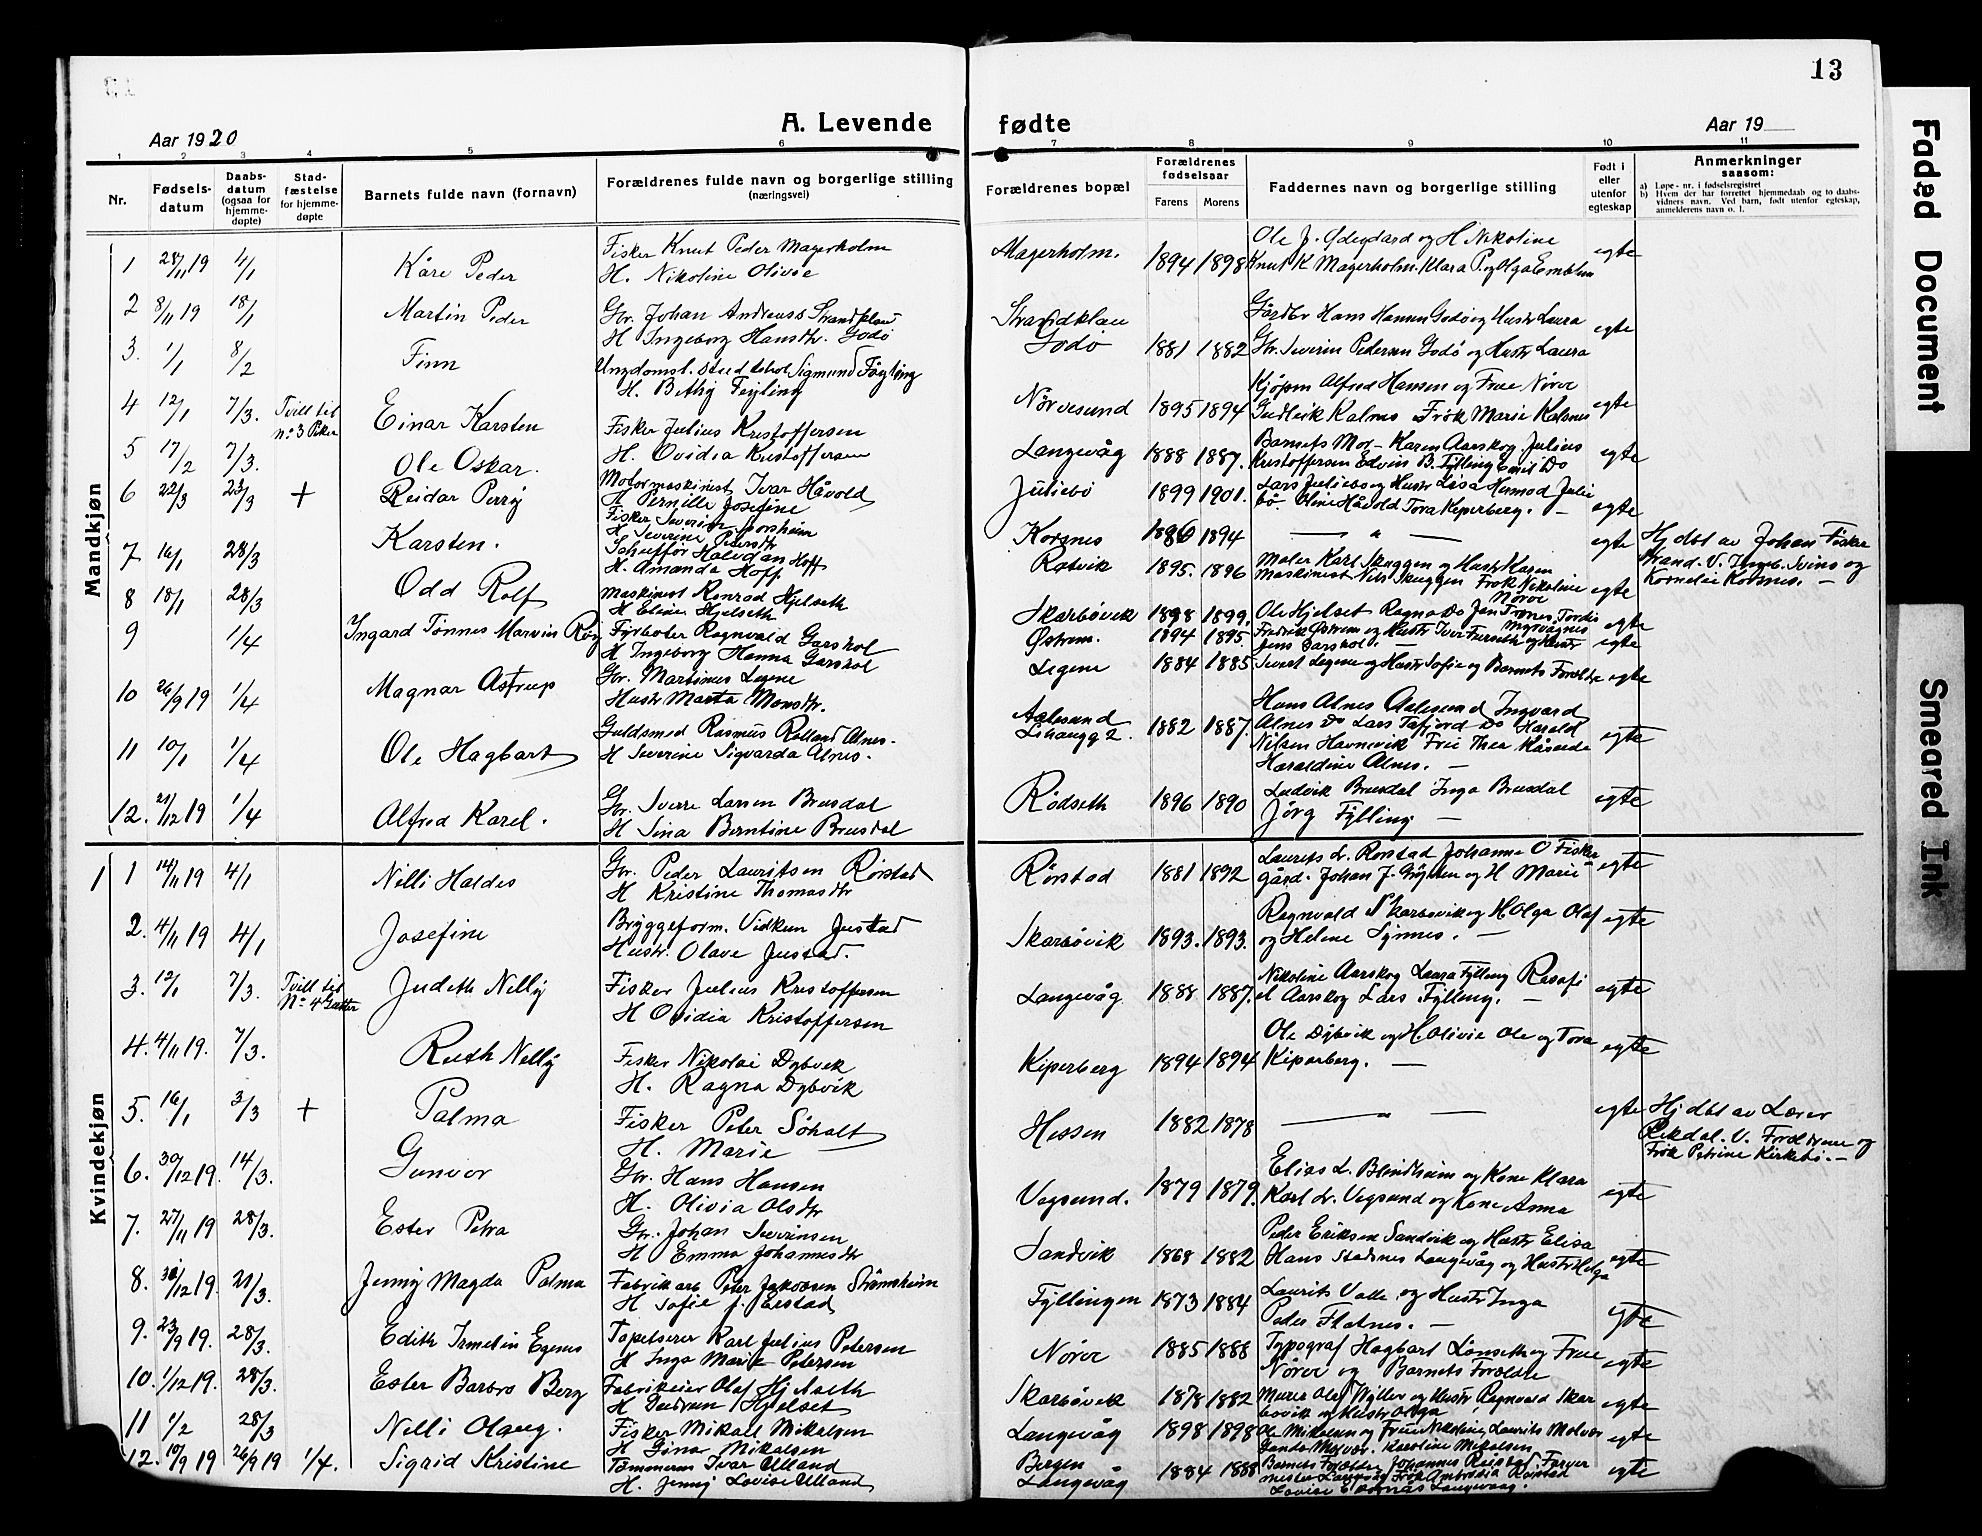 13
A. Levende fødte
Aar 1920
Aar 19
1 2 3 4 5 6 7 8 9 10 11
Nr.
Fødsels-datum
Daabs-datum (ogsaa for hjemme-døpte)
Stad-fæstelse for hjemme-døpte
Barnets fulde navn (fornavn)
Forældrenes fulde navn og borgerlige stilling (næringsvei)
Forældrenes bopæl
Forældrenes fødselsaar
Farens Morens
Faddernes navn og borgerlige stilling
Født i eller utenfor egteskap
Anmerkninger saasom:
a) Løpe-nr. i fødselsregistret
b) Hvem der har forrettet hjemmedaab og to daabsvidners navn. Ved barn, født utenfor egteskap, anmelderens navn o. l.
Mandkjøn
1 28/11 19 4/1 Kåre Peder Fisker Knut Peder Magerholm
H. Nikoline Olivie Magerholm. 1894 1898 Ole J. Ødegård og H Nikoline
Knut K Magerholm. Klara P. og Olga Emblem egte
2 8/11 19 18/1 Martin Peder Gbr. Johan Andreas S Strandklau
H Ingeborg Hansdtr. Godø Strandklau Godø 1881 1882 Gårdbr Hans Hansen Godø og Hustr Laura
Gbr. Severin Pedersen Godø og Hustr Laura egte
3. 1/1 8/2 Finn Ungdomsl. Sigmund Føyling
H. Bethy Føyling Nørvesund 1895 1894 Kjøpm Alfred Hansen og Frue Nørve
Kalnes Frøk Marie Kalnes egte
4 12/1 7/3. Tvill til No 3 Piker Einar Karsten Fisker Julius Kristoffersen
H. Ovidia Kristoffersen Langevåg 1888 1887. Barnets Mor - Karen Aarskog Julius
Kristoffersen Edvin B. Fylling Emil Do egte
5 17/2 7/3. Ole Oskar. Motormaskinist Ivar Håvold
H Pernille Josefine Juliebø 1899 1901. Lars Juliebø og Hustr Lisa Hermod Julie
bø. Oline Håvold Tora Kiperberg. — egte
6 22/3 23/3 + Reidar Perry Fisker Severin
H Severine Pedersdtr Korsnes 1886 1894 — " — egte Hj dbt av Johan Fisker
strand. V. Ingeb. Svins og
Kornelie Korsnes. —
7 16/1 28/3 Karsten. Schuffør Halvdan Hoff
H. Amanda Hoff Ratvik 1895. 1896 Maler Karl Skuggen og Hustr Karen
Maskinist Nils Skuggen Frøk Nikoline Nørve egte
8 18/1 28/3 Odd Rolf Maskinist Konrad Hjelseth
H Eline Hjelseth Skarbøvik 1898 1899. Ole Hjelset Ragna Do Jan egte
9 1/4 Ingard Tønnes Marvin Roy Fyrbøter Ragnvald Garshol
H Ingeborg Hanna Garshol Østrem. 1894 1895. Fredrik Østrem og Hustr
Jens Garshol. — egte
10 26/9 19 1/4 Magnar Astrup Gbr. Martinus Legene
Hustr Marta Monsdtr. Legene 1884 1885 Sivert Legene og Hustr Sofie og Barnets Foreldre egte
11 10/1 1/4 Ole Hagbart Guldsmed Rasmus Rolland Alnes.
H Severine Sigvarda Alnes. Aalesund 1882 1887. Hans Alnes Aalesund Ingvard
Alnes Do Lars Tafjord Do Harald
Nilsen Havnevik Frue Thea Kåseide
Haraldine Alnes. — egte
12. 21/12 19 1/4 Alfred Karel. Gbr. Sverre Larsen Brusdal
H Sina Berntine Brusdal Rødseth 1896 1890 Ludvik Brusdal Inga Brusdal
Jørg Fylling — egte
Kvindekjøn
1 1 14/11 19 4/1 Nelli Haldis Gbr. Peder Lauritsen Rørstad
H Kristine Thomasdtr Rørstad 1881 1892 Laurits L. Rørstad Johanna O Fisker
gård. Johan J. og H Marie egte
2. 4/11 19 4/1 Josefine Bryggeform. Vidkun Justad
Hustr. Olave Justad. Skarbøvik 1893. 1893. Ragnvald Skarbøvik og H Olga Olaf
og Helene Synnes. — egte
3. 12/1 7/3. Tvill til No 4 Gutter Judith Nelly Fisker Julius Kristoffersen
H Ovidia Kristoffersen Langevåg 1888 1887. Nikoline Aarskog Laura Fylling Rasafi
el Aarskog Lars Fylling. — egte
4. 4/11 19. 7/3. Ruth Nelly Fisker Nikolai Dybvik
H. Ragna Dybvik Kiperberg 1894 1894 Ole Dybvik og H. Olivie Ole og Tora
Kiperberg. — egte
5. 16/1 3/3 + Palma Fisker Peter Søholt
H. Marie Hessen 1882 1878 — " — egte Hj dbt av Lærer
Rekdal. V. Foreldrene og
Frøk Petrine Kirkebø. —
6. 30/12 19. 14/3. Gunvor Gbr. Hans Hansen
H. Olivia Olsdtr Vegsund. 1879 1879. Elias L. Blindheim og Kone Klara
Karl L. Vegsund og Kone Anna egte
7. 27/11 19 28/3. Ester Petra Gbr. Johan Severinsen
H Emma Johannesdtr Sandvik 1868 1882 Peder Eriksen Sandvik og Hustr Elisa
Hans Stadsnes Langevåg og Hustr Helga egte
8. 30/12 19. 21/3. Jenny Magda Palma Fabrikarb Peter Jakobsen Strømsheim
H Sofie J. Erstad Fyllingen 1873 1884 Laurits Valle og Hustr Inga
Peder Flatnes. — egte
9. 23/9 19. 28/3. Edith Irmelin Egenes Tapetserer Karl Julius Petersen
H Inga Marie Petersen Nørve 1885 1888 Typograf Hagbart Lønseth og Frue
Nørve og Barnets Forældre egte
10. 1/12 19. 28/3. Ester Barbro Berg Fabrikeier Olaf Hjelseth
H Gudrun Hjelset Skarbøvik 1878 1882 Murer Ole Myller og Hustr Ragnvald Skar
bøvik og Hustr Olga egte
11 1/2 28/3 Nelli Olaug. Fisker Mikael Mikalsen
H Gina Mikalsen Langevåg 1898 1898 Ole Mikalsen og Frue Nikoline Laurits Molvær
Molvær. Karoline Mikalsen egte
12. 10/9 19 26/9 19 1/4. Sigrid Kristine Tømmerm Ivar Ulland
H. Jenny Lovise Ulland Bergen Langevåg 1884 1888 Barnets Forældre Johannes Farver
mester Langevåg Frøk Ambrosia Rørstad
Lovise Langevaag. egte
Faded Document
Smeared Ink